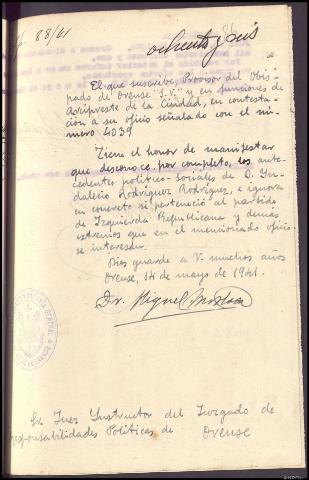 p. 88/41
ochenta y seis
El que suscribe, Provisor del Obis-
pado de Orense "S.V." y en funciones de
Arcipreste de la Ciudad, en contesta-
ción a su oficio señalado con el nú-
mero 4039
Tiene el honor de manifestar
que desconoce por completo, los ante-
cedentes político-sociales de D. In-
dalecio Rodríguez Rodríguez, e ignora
en concreto si perteneció al partido
de Izquierda Republicana y demás
extremos que en el mencionado oficio
se interesan.
Dios guarde a V. muchos años
Orense, 14 de mayo de 1941.
Dr. Miguel
Sr. Juez Instructor del Juzgado de
responsabilidades Políticas de Orense